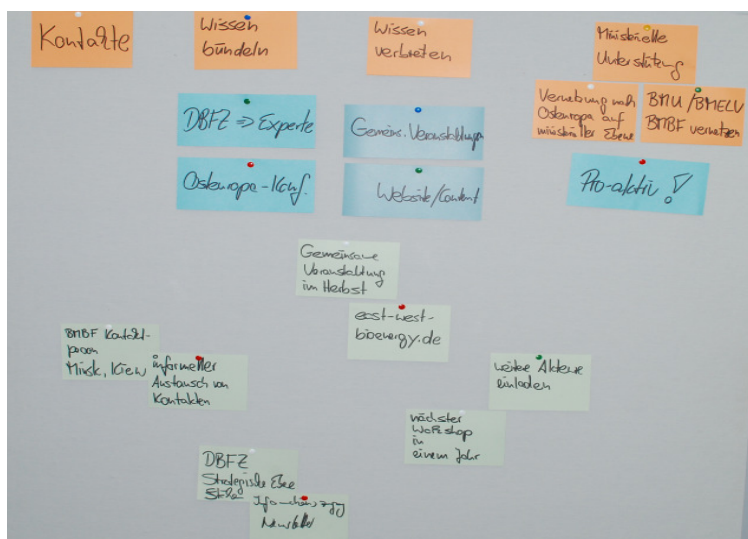 Kontakte
Wissen
bündeln
Wissen
verbreiten
Ministerielle
Unterstützung
Vernetzung nach
Osteuropa auf
ministerieller Ebene
BMU/BMELV
BMBF vernetzen
DBFZ => Experte
Gemeins. Veranstaltungen
Osteuropa-Konf.
Website/Content
Pro-aktiv!
Gemeinsame
Veranstaltung
im Herbst
east-west-
bioenergy.de
BMBF Kontakt-
person
Minsk, Kiew
informeller
Austausch von
Kontakten
weitere Akteure
einladen
nächster
Workshop
in
einem Jahr
DBFZ
Strategische Ebene
Newsletter